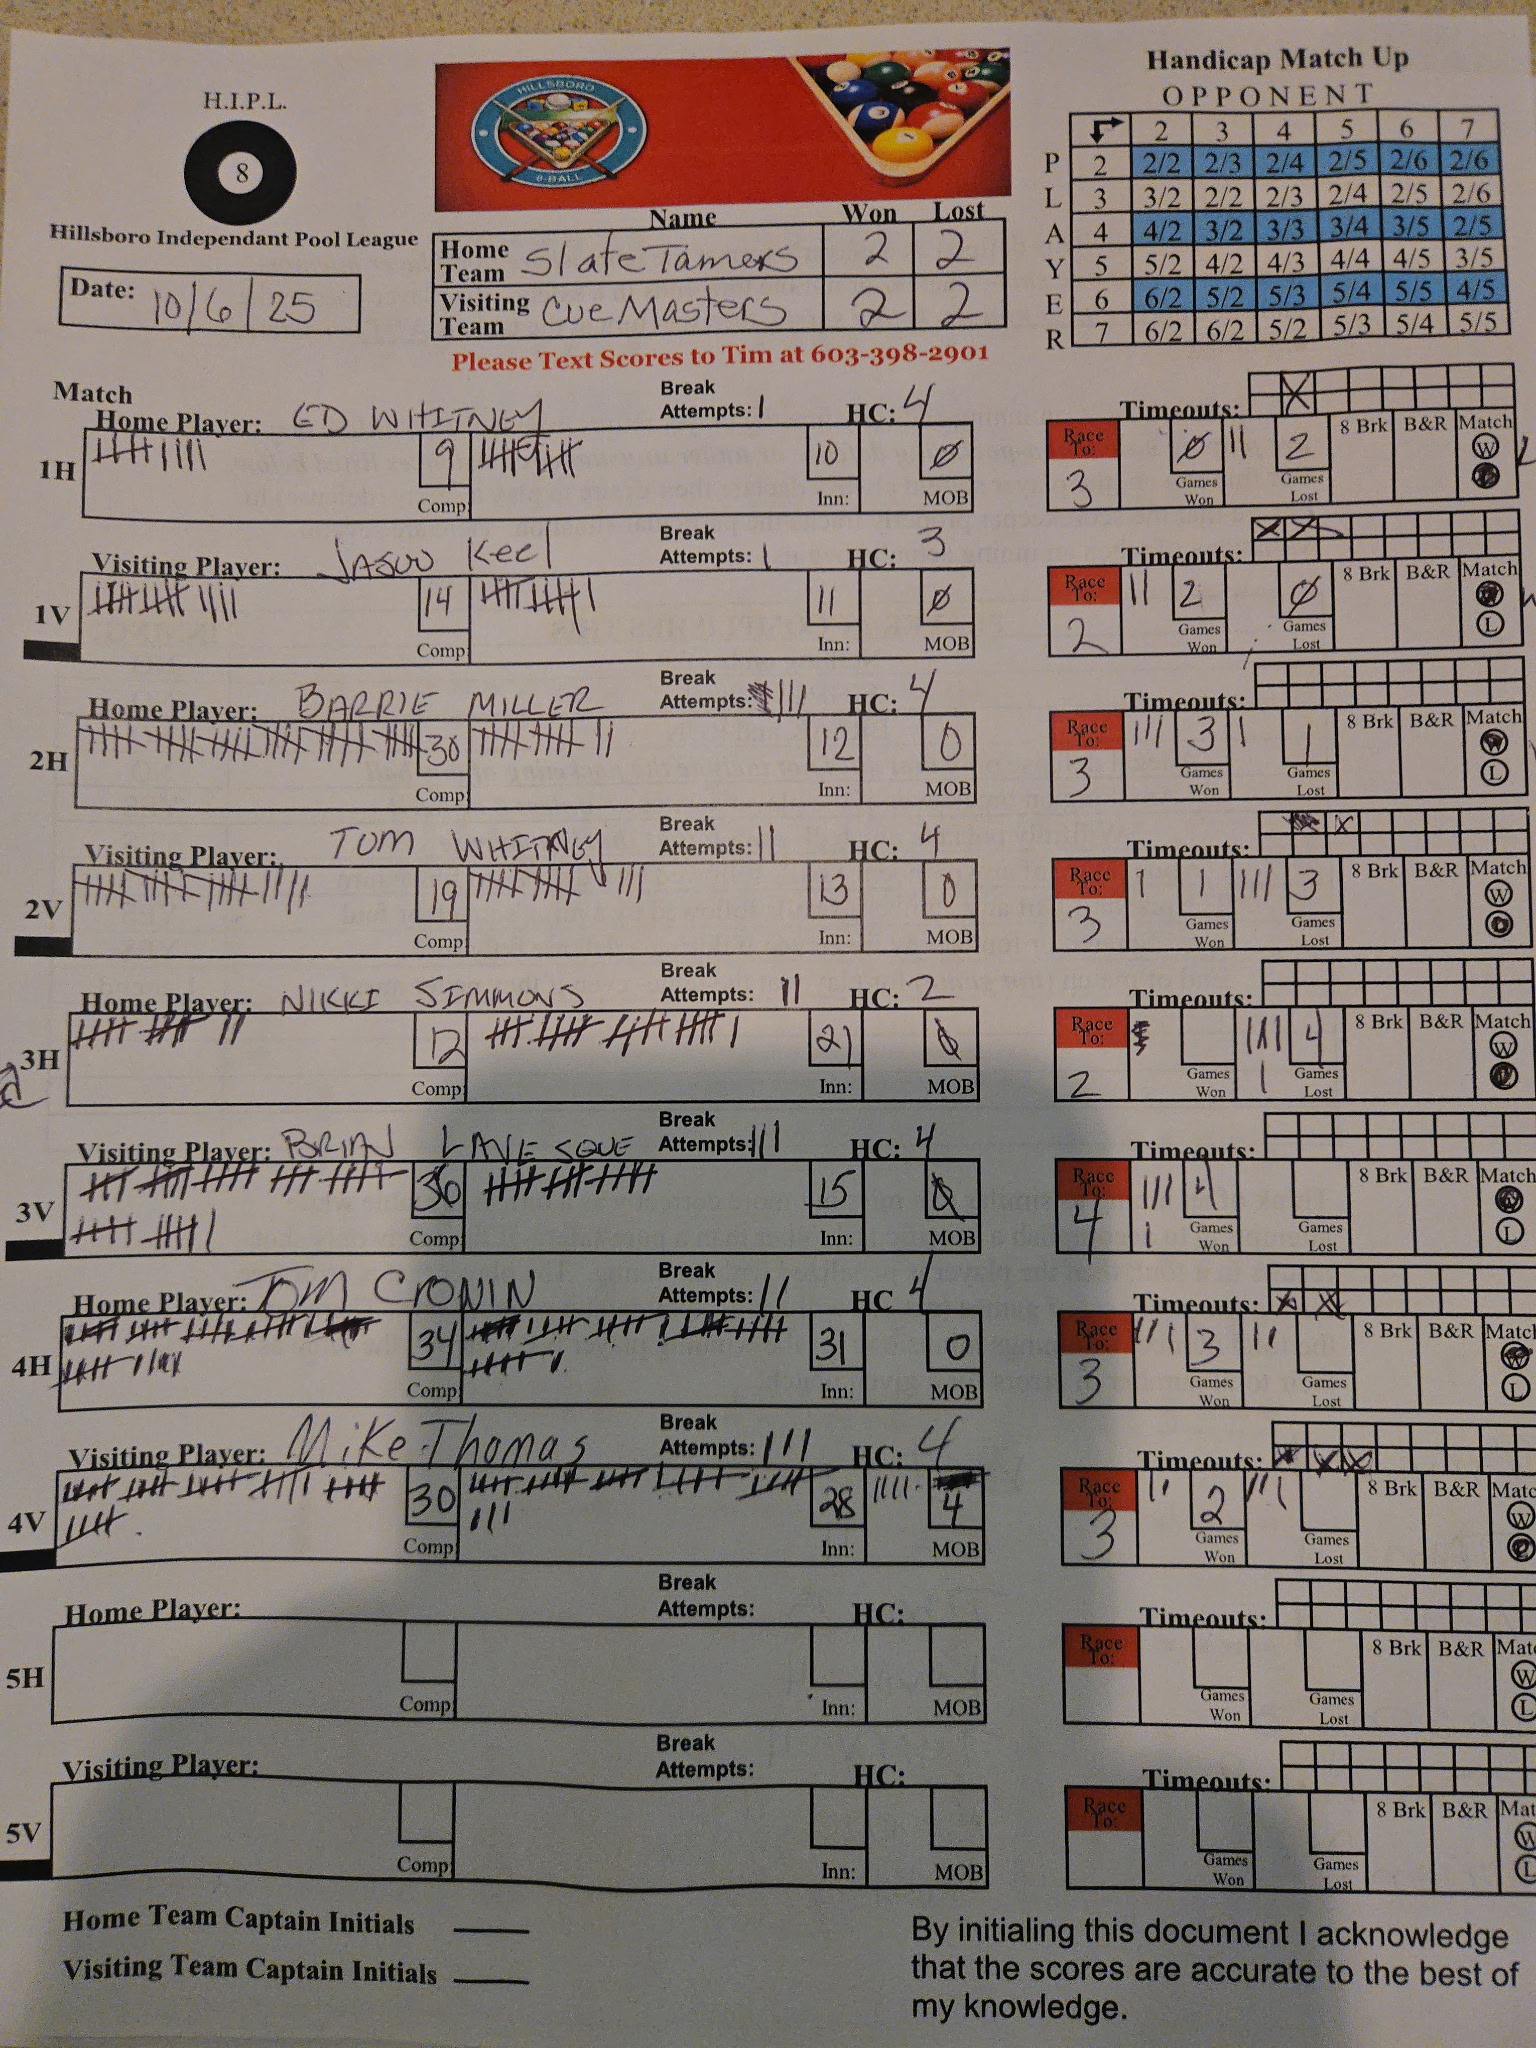 H.I.P.L.
8
Hillsboro Independant Pool League
Date: 10/6/25
HILLSBORO
8-BALL
Name Won Lost
Home Team Slate Tamers 2 2
Visiting Team Cue Masters 2 2
Please Text Scores to Tim at 603-398-2901
Handicap Match Up
OPPONENT
PLAYER
2 3 4 5 6 7
2 2/2 2/3 2/4 2/5 2/6 2/6
3 3/2 2/2 2/3 2/4 2/5 2/6
4 4/2 3/2 3/3 3/4 3/5 2/5
5 5/2 4/2 4/3 4/4 4/5 3/5
6 6/2 5/2 5/3 5/4 5/5 4/5
7 6/2 6/2 5/2 5/3 5/4 5/5
Match
Home Player: ED WHITNEY Break Attempts: | HC: 4 Timeouts: X
1H 9 Comp 10 Inn: 0 MOB Race To: 3 0 Games Won || 2 Games Lost 8 Brk B&R Match W L
Visiting Player: Jason Keel Break Attempts: | HC: 3 Timeouts: X X
1V 14 Comp 11 Inn: 0 MOB Race To: 2 || 2 Games Won 0 Games Lost 8 Brk B&R Match W L
Home Player: BARRIE MILLER Break Attempts: ||| HC: 4 Timeouts:
2H 30 Comp 12 Inn: 0 MOB Race To: 3 ||| 3 Games Won | 1 Games Lost 8 Brk B&R Match W L
Visiting Player: TOM WHITNEY Break Attempts: || HC: 4 Timeouts: X
2V 19 Comp 13 Inn: 0 MOB Race To: 3 | 1 Games Won ||| 3 Games Lost 8 Brk B&R Match W L
Home Player: NIKKI SIMMONS Break Attempts: || HC: 2 Timeouts:
3H 12 Comp 21 Inn: 0 MOB Race To: 2 Games Won |||| 4 Games Lost 8 Brk B&R Match W L
Visiting Player: BRIAN LAVESQUE Break Attempts: ||| HC: 4 Timeouts:
3V 36 Comp 15 Inn: 0 MOB Race To: 4 |||| 4 Games Won Games Lost 8 Brk B&R Match W L
Home Player: Tom CRONIN Break Attempts: || HC 4 Timeouts: X X
4H 34 Comp 31 Inn: 0 MOB Race To: 3 ||| 3 Games Won || Games Lost 8 Brk B&R Match W L
Visiting Player: Mike Thomas Break Attempts: ||| HC: 4 Timeouts: X X X
4V 30 Comp 28 Inn: |||| 4 MOB Race To: 3 || 2 Games Won ||| Games Lost 8 Brk B&R Matc W L
Home Player: Break Attempts: HC: Timeouts:
5H Comp Inn: MOB Race To: Games Won Games Lost 8 Brk B&R Matc W L
Visiting Player: Break Attempts: HC: Timeouts:
5V Comp Inn: MOB Race To: Games Won Games Lost 8 Brk B&R Mat W L
Home Team Captain Initials
Visiting Team Captain Initials
By initialing this document I acknowledge
that the scores are accurate to the best of
my knowledge.